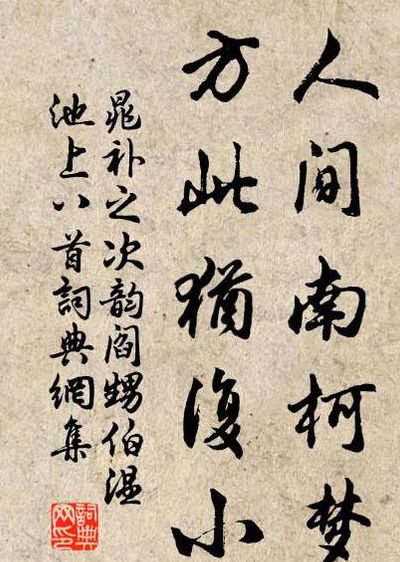 人间南柯梦
方此猶復小
晁补之次韵阎甥伯温
池上八首詞典網集
詞典
网印